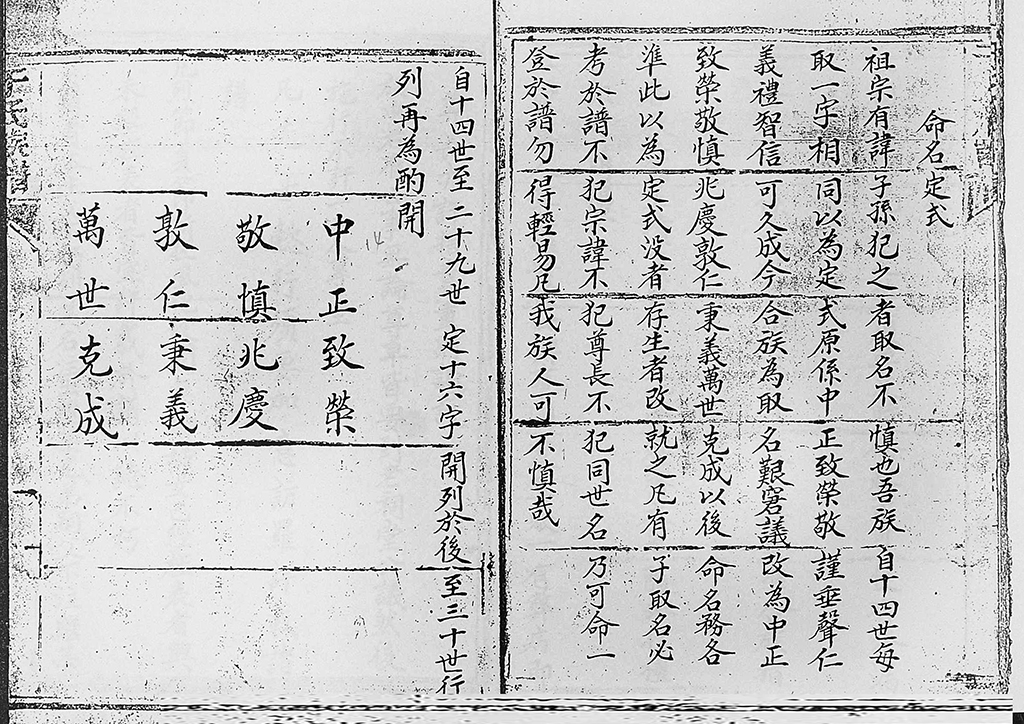 命名定式
祖宗有諱子孫犯之者取名不慎也吾族自十四世每
取一字相同以為定式原係中正致榮敬謹垂聲仁
義禮智信可久成今合族為取名艱窘議改為中正
致榮敬慎兆慶敦仁秉義萬世克成以後命名務各
準此以為定式没者存生者改就之凡有子取名必
考於譜不犯宗諱不犯尊長不犯同世名乃可命一
登於譜勿得輕易凡我族人可不慎哉
自十四世至二十九世定十六字開列於後至三十世行
列再為酌開
中正致榮
敬慎兆慶
敦仁秉義
萬世克成
14
氏族譜